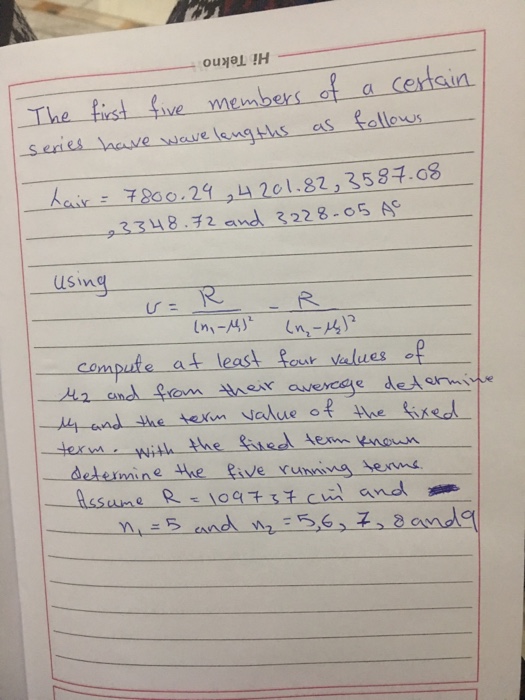 Hi Tekno
The first five members of a certain
series have wavelengths as follows
λair = 7800.29 , 4201.82, 3587.08
, 3348.72 and 3228.05 A°
using
υ = R/(n₁-μ₁)² - R/(n₂-μ₂)²
compute at least four values of
μ₂ and from their average determine
μ₁ and the term value of the fixed
term. with the fixed term known
determine the five running terms.
Assume R = 109737 cm⁻¹ and
n₁ = 5 and n₂ = 5,6, 7, 8 and 9